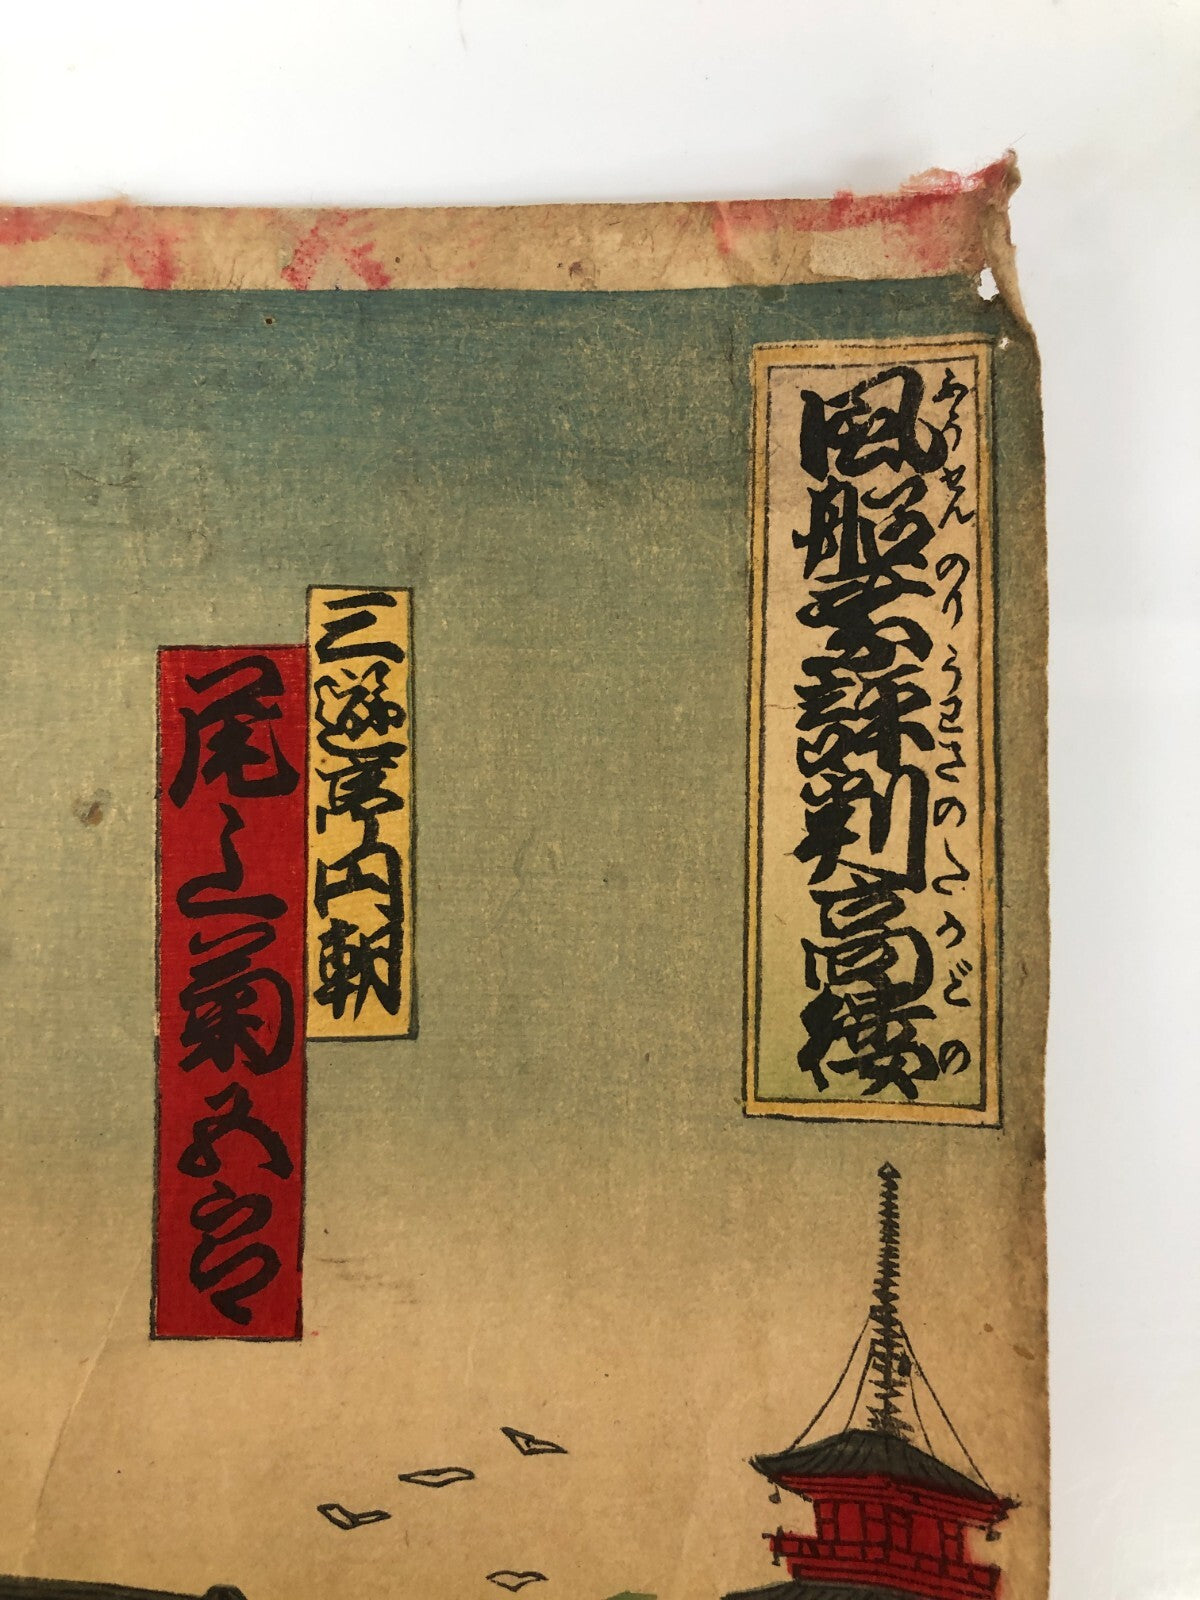 風船乗評判高楼
ふうせんのりうわさのたかどの
三遊亭円朝
尾上菊五郎